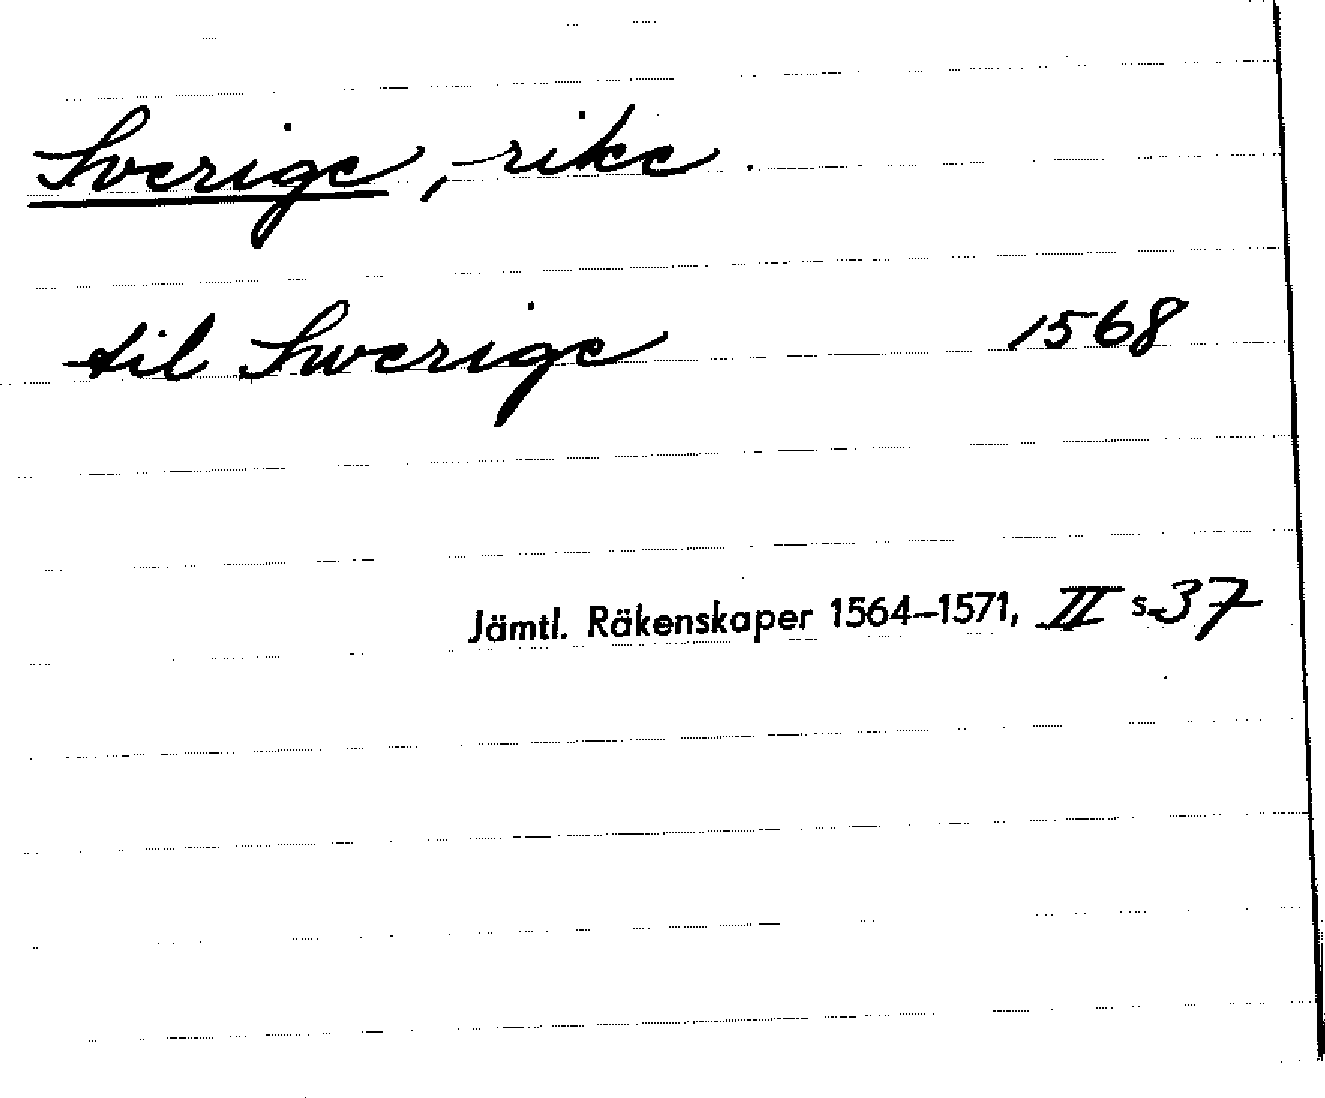 Sverige, rike.
til Swerige 1568
Jämtl. Räkenskaper 1564–1571, II s. 37